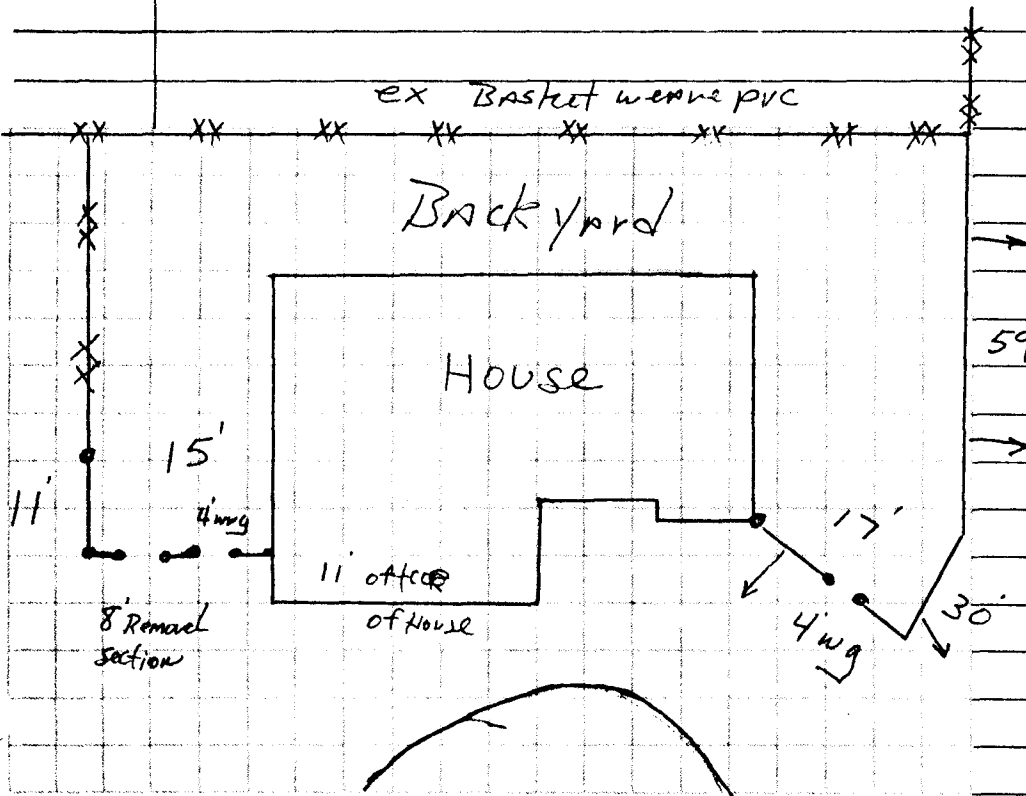 ex Basket weave pvc
Back yard
House
59
15'
11'
4' wg
17'
11' off
of House
8' Removal
section
4' wg
30'